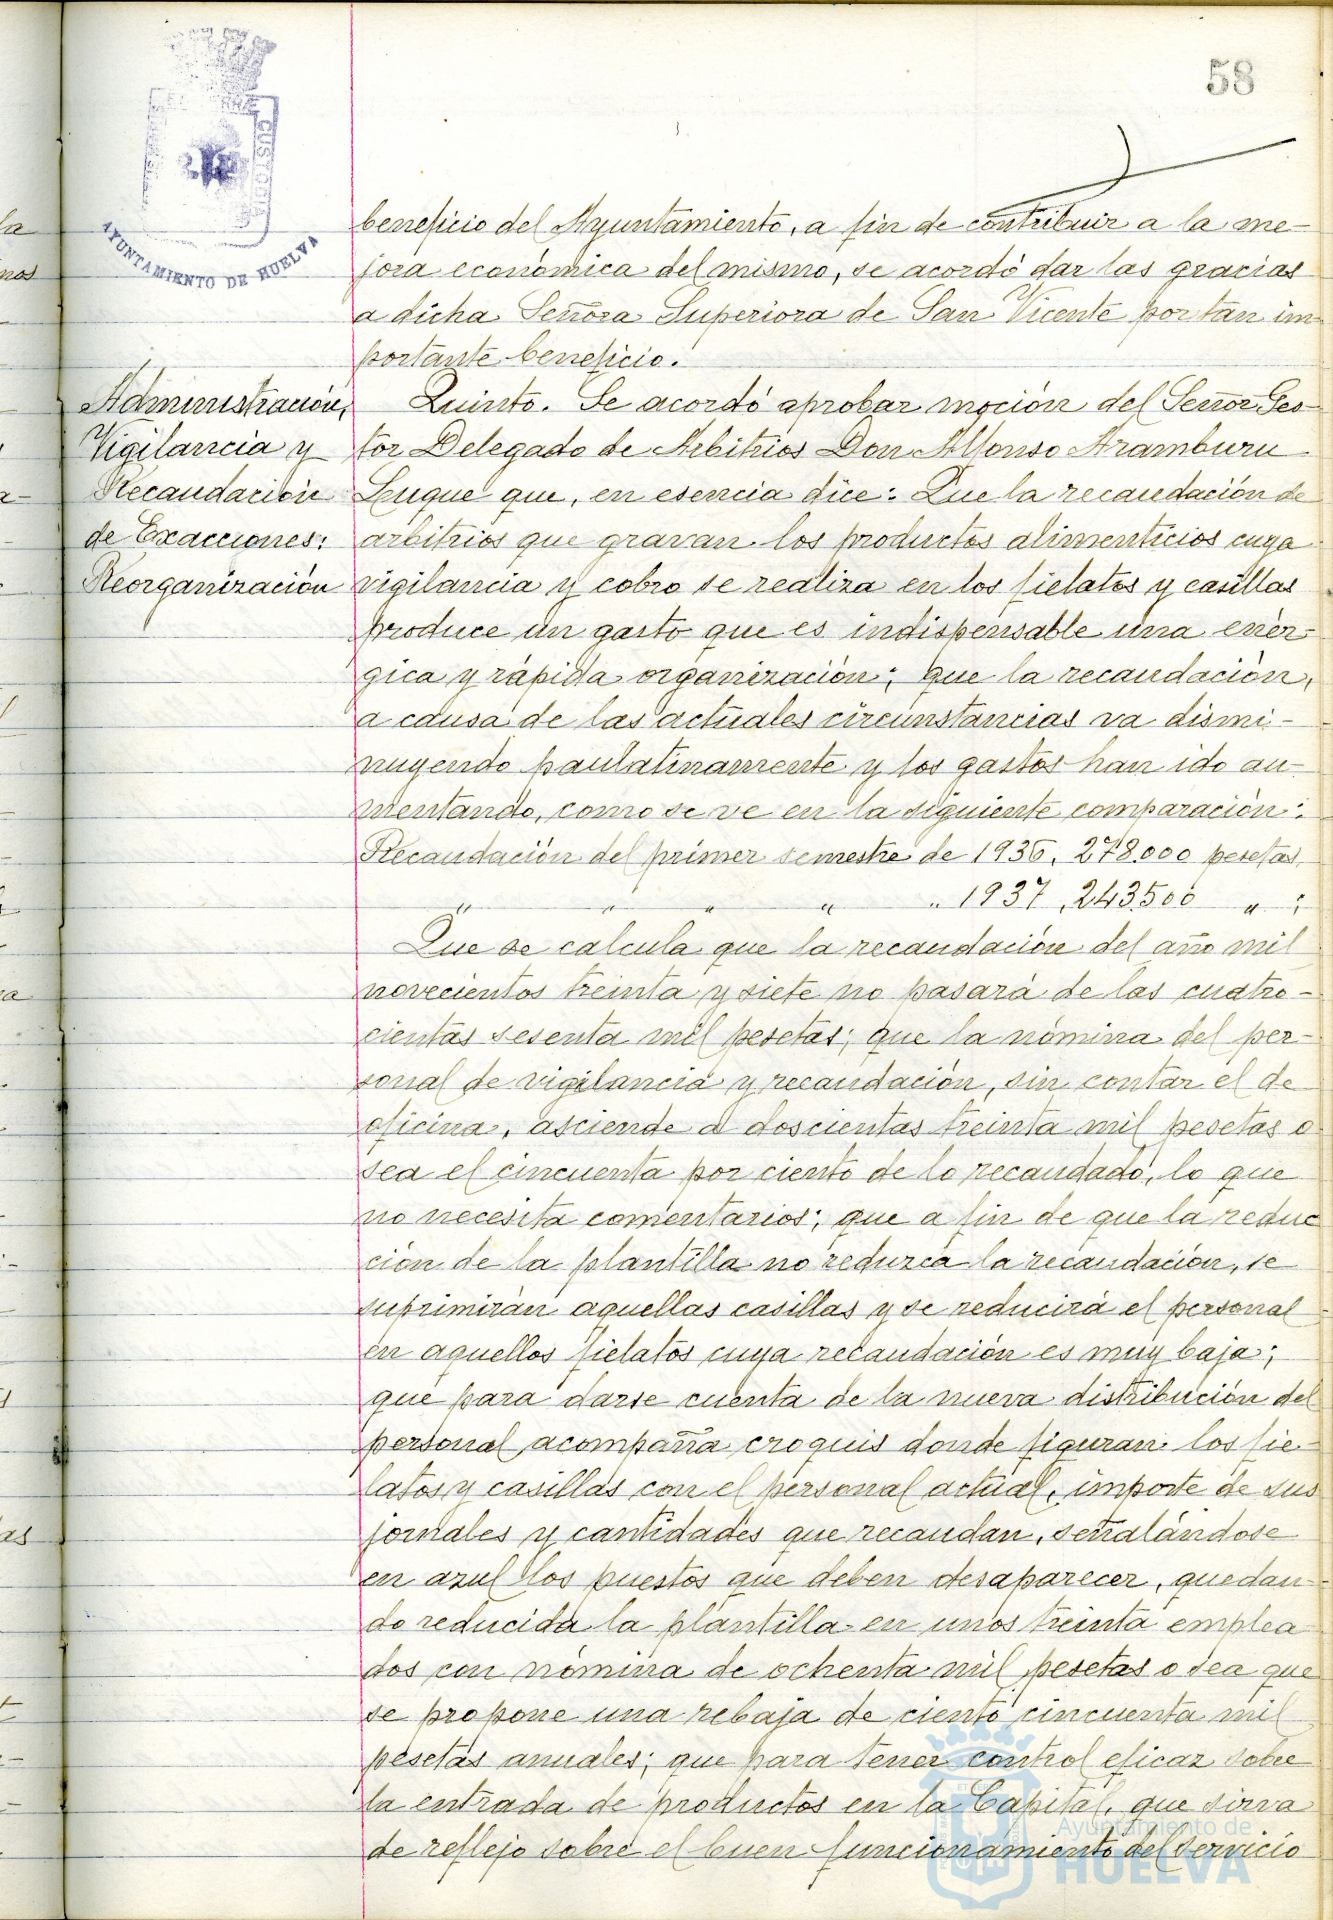 58
CUSTODIA
AYUNTAMIENTO DE HUELVA
beneficio del Ayuntamiento, a fin de contribuir a la me-
jora económica del mismo, se acordó dar las gracias
a dicha Señora Superiora de San Vicente por tan im-
portante beneficio.
Administración,
Vigilancia y
Recaudación
de Exacciones:
Reorganización
Quinto. Se acordó aprobar moción del Señor Ges-
tor Delegado de Arbitrios Don Alfonso Aramburu
Luque que, en esencia dice: Que la recaudación de
arbitrios que gravan los productos alimenticios cuya
vigilancia y cobro se realiza en los fielatos y casillas
produce un gasto que es indispensable una enér-
gica y rápida organización; que la recaudación,
a causa de las actuales circunstancias va dismi-
nuyendo paulatinamente y los gastos han ido au-
mentando, como se ve en la siguiente comparación:
Recaudación del primer semestre de 1936, 278.000 pesetas,
" " " " " 1937, 243.500 " ;
Que se calcula que la recaudación del año mil
novecientos treinta y siete no pasará de las cuatro-
cientas sesenta mil pesetas; que la nómina del per-
sonal de vigilancia y recaudación, sin contar el de
oficina, asciende a doscientas treinta mil pesetas o
sea el cincuenta por ciento de lo recaudado, lo que
no necesita comentarios; que a fin de que la reduc
ción de la plantilla no reduzca la recaudación, se
suprimirán aquellas casillas y se reducirá el personal
en aquellos fielatos cuya recaudación es muy baja;
que para darse cuenta de la nueva distribución del
personal acompaña croquis donde figuran los fie-
latos y casillas con el personal actual, importe de sus
jornales y cantidades que recaudan, señalándose
en azul los puestos que deben desaparecer, quedan-
do reducida la plantilla en unos treinta emplea
dos con nómina de ochenta mil pesetas o sea que
se propone una rebaja de ciento cincuenta mil
pesetas anuales; que para tener control eficaz sobre
la entrada de productos en la Capital, que sirva
de reflejo sobre el buen funcionamiento del servicio
Ayuntamiento de
HUELVA